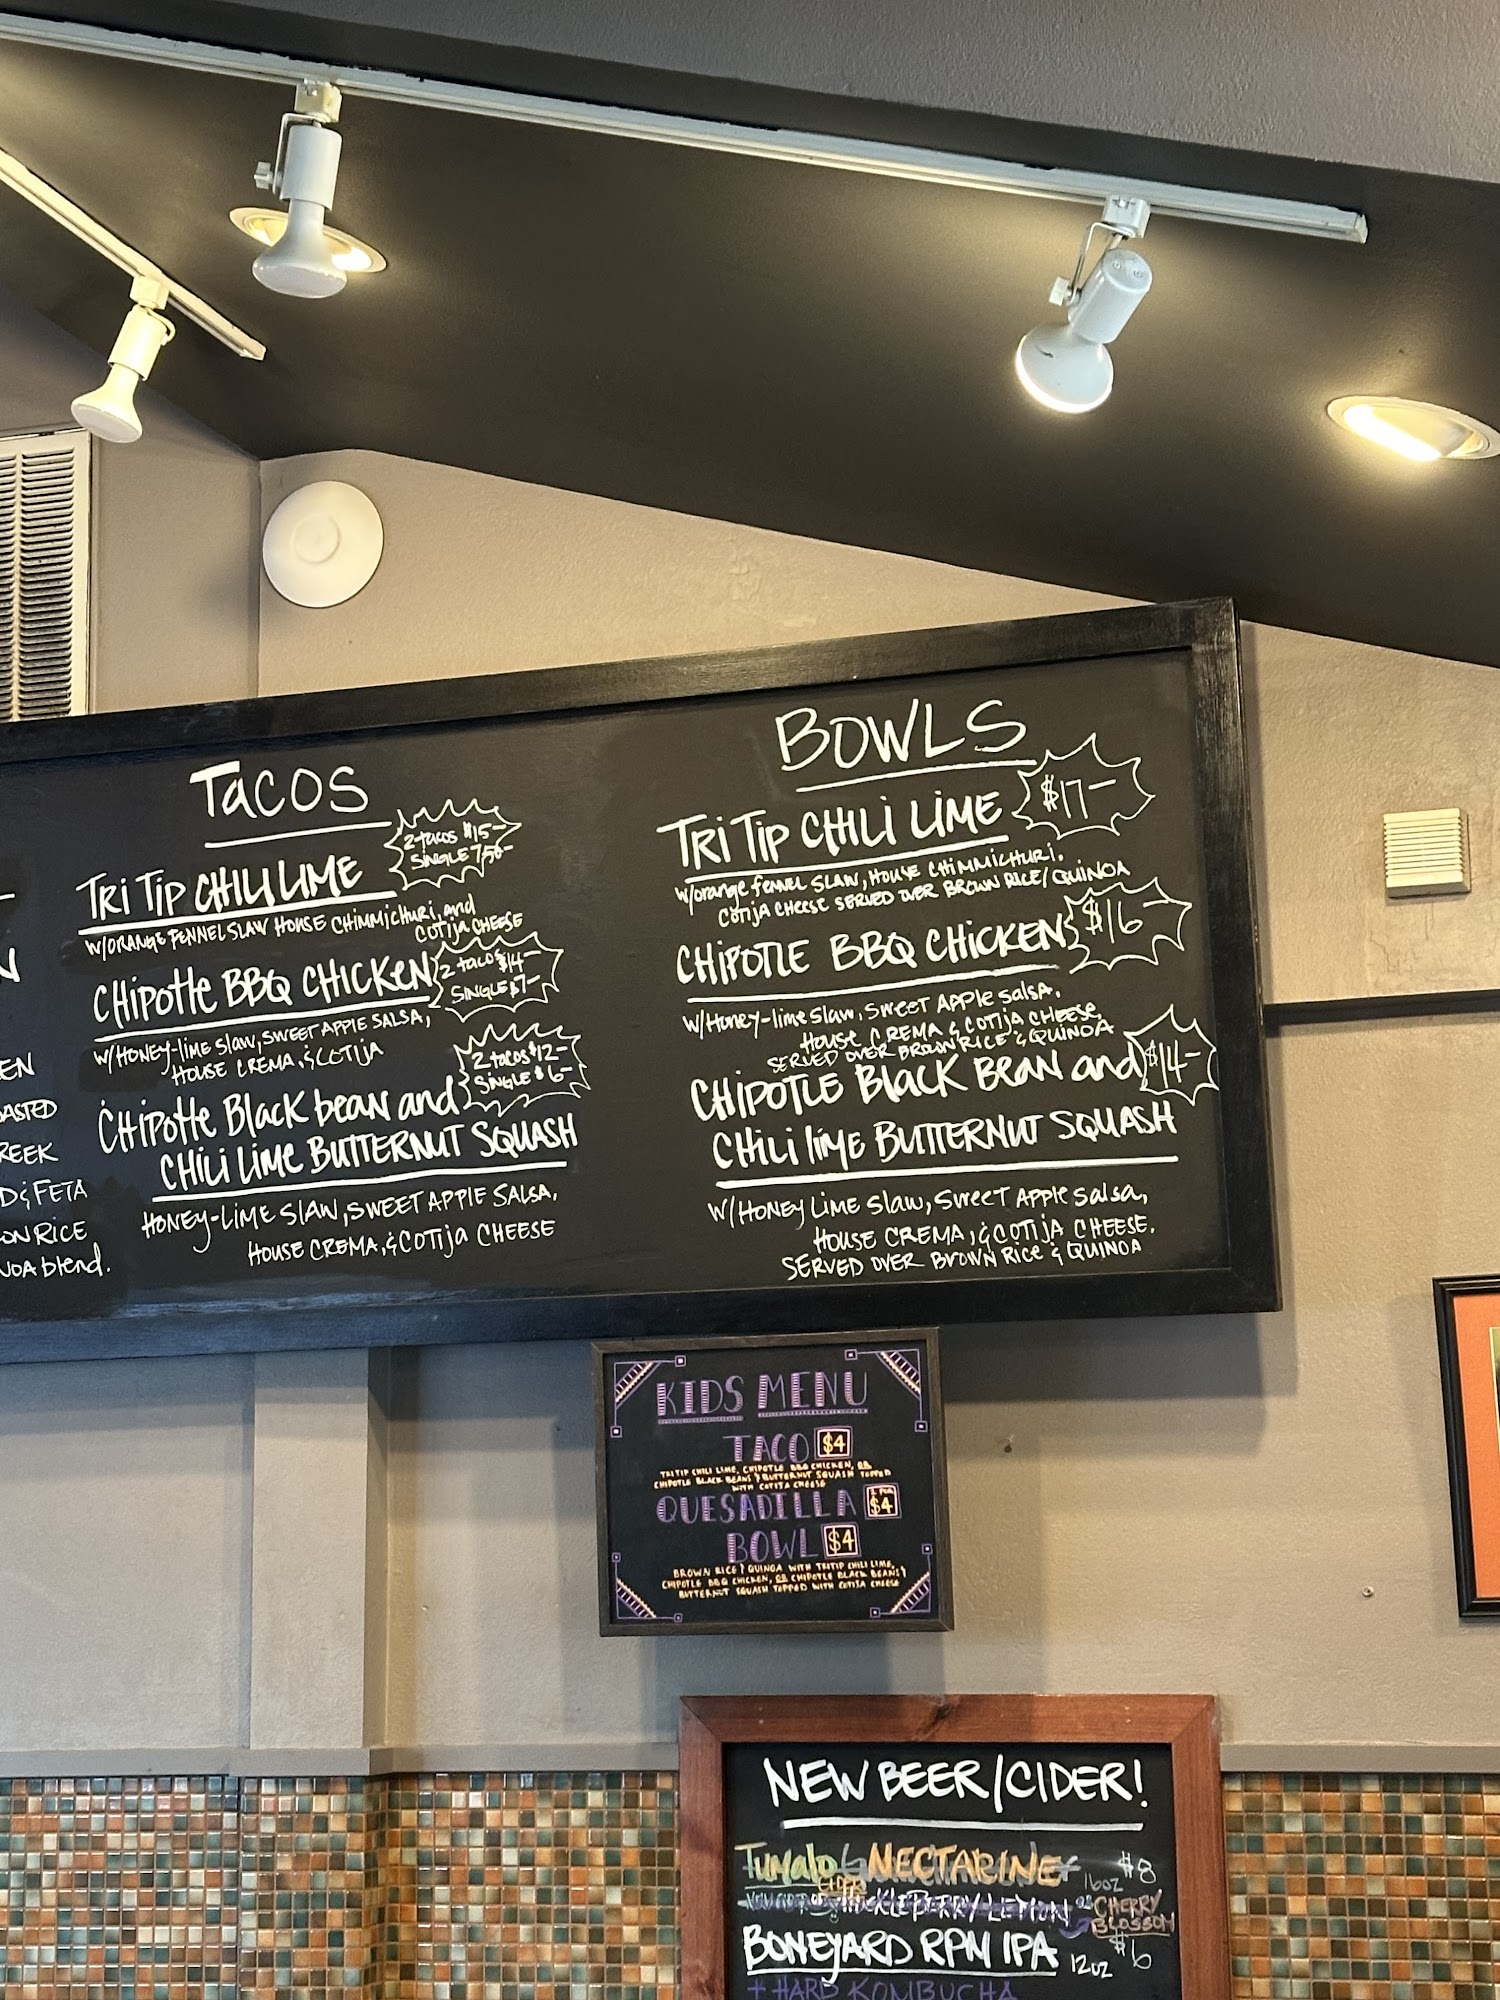 EN
OASTED
REEK
D & FETA
ON RICE
NOA blend.
TACOS
TRI TIP CHILI LIME
2 tacos $15-
SINGLE 7.50-
W/ORANGE FENNEL SLAW HOUSE CHIMMICHURI, and
COTIJA CHEESE
CHIPOTLE BBQ CHICKEN
2 tacos $14-
SINGLE $7-
W/HONEY-LIME SLAW, SWEET APPLE SALSA,
HOUSE CREMA, & COTIJA
CHIPOTLE BLACK BEAN AND
2 tacos $12-
SINGLE $6-
CHILI LIME BUTTERNUT SQUASH
HONEY-LIME SLAW, SWEET APPLE SALSA,
HOUSE CREMA, & COTIJA CHEESE
BOWLS
TRI TIP CHILI LIME
$17-
W/ORANGE FENNEL SLAW, HOUSE CHIMMICHURI,
COTIJA CHEESE SERVED OVER BROWN RICE/QUINOA
CHIPOTLE BBQ CHICKEN
$16-
W/HONEY-LIME SLAW, SWEET APPLE SALSA,
HOUSE CREMA & COTIJA CHEESE,
SERVED OVER BROWN RICE & QUINOA
CHIPOTLE BLACK BEAN AND
$14-
CHILI LIME BUTTERNUT SQUASH
W/HONEY LIME SLAW, SWEET APPLE SALSA,
HOUSE CREMA, & COTIJA CHEESE.
SERVED OVER BROWN RICE & QUINOA
KIDS MENU
TACO $4
TRI TIP CHILI LIME, CHIPOTLE BBQ CHICKEN, OR
CHIPOTLE BLACK BEANS & BUTTERNUT SQUASH TOPPED
WITH COTIJA CHEESE
QUESADILLA $4
BOWL $4
BROWN RICE & QUINOA WITH TRITIP CHILI LIME,
CHIPOTLE BBQ CHICKEN, OR CHIPOTLE BLACK BEANS &
BUTTERNUT SQUASH TOPPED WITH COTIJA CHEESE
NEW BEER/CIDER!
Tumalo CIDER NECTARINE
16oz $8
HUCKLEBERRY LEMON
OR CHERRY
BLOSSOM
BONEYARD RPM IPA
12oz $6
+ HARD KOMBUCHA